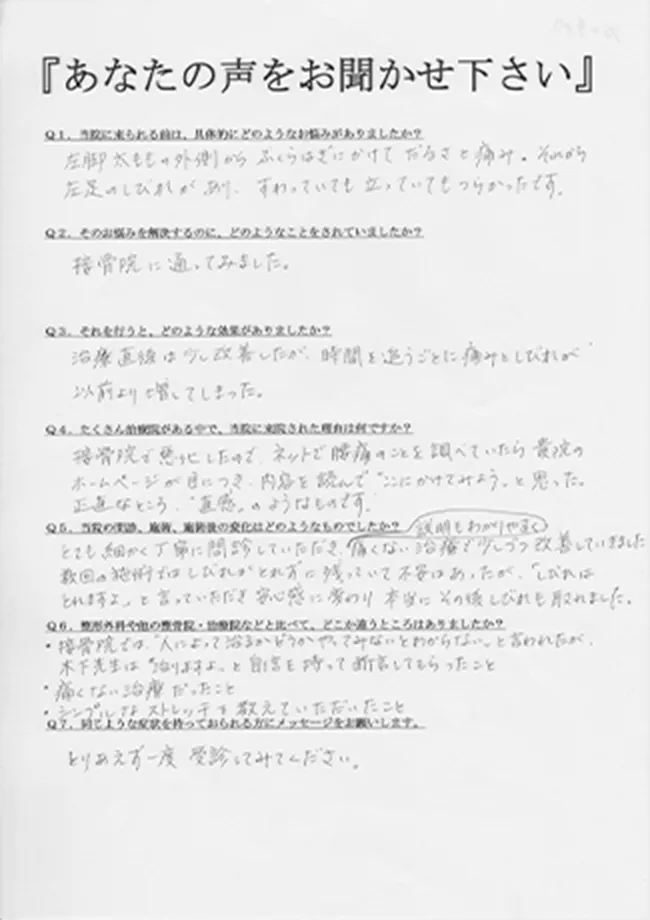 『あなたの声をお聞かせ下さい』
Q1．当院に来られる前は、具体的にどのようなお悩みがありましたか？
左脚太ももの外側から ふくらはぎにかけて だるさと痛み。それから
左足のしびれがあり、すわっていても立っていてもつらかったです。
Q2．そのお悩みを解決するのに、どのようなことをされていましたか？
接骨院に通ってみました。
Q3．それを行うと、どのような効果がありましたか？
治療直後は少し改善したが、時間を追うごとに痛みとしびれが
以前より増してしまった。
Q4．たくさん治療院がある中で、当院に来院された理由は何ですか？
接骨院で悪化したので、ネットで腰痛のことを調べていたら貴院の
ホームページが目につき、内容を読んで“ここにかけてみよう”と思った。
正直なところ、“直感”のようなものです。
Q5．当院の問診、施術、施術後の変化はどのようなものでしたか？ 説明もわかりやすく
とても細かく丁寧に問診していただき、痛くない治療で少しづつ改善していきました
数回の施術ではしびれがとれずに残っていて不安はあったが、“しびれは
とれますよ”と言っていただき安心感に変わり 本当にその後しびれも取れました。
Q6．整形外科や他の整骨院・治療院などと比べて、どこか違うところはありましたか？
・接骨院では、“人によって治るかどうかやってみないとわからない”と言われたが、
木下先生は“治りますよ”と自信を持って断言してもらったこと
・痛くない治療だったこと
・シンプルなストレッチを教えていただいたこと
Q7．同じような症状を持っておられる方にメッセージをお願いします。
とりあえず一度 受診してみてください。